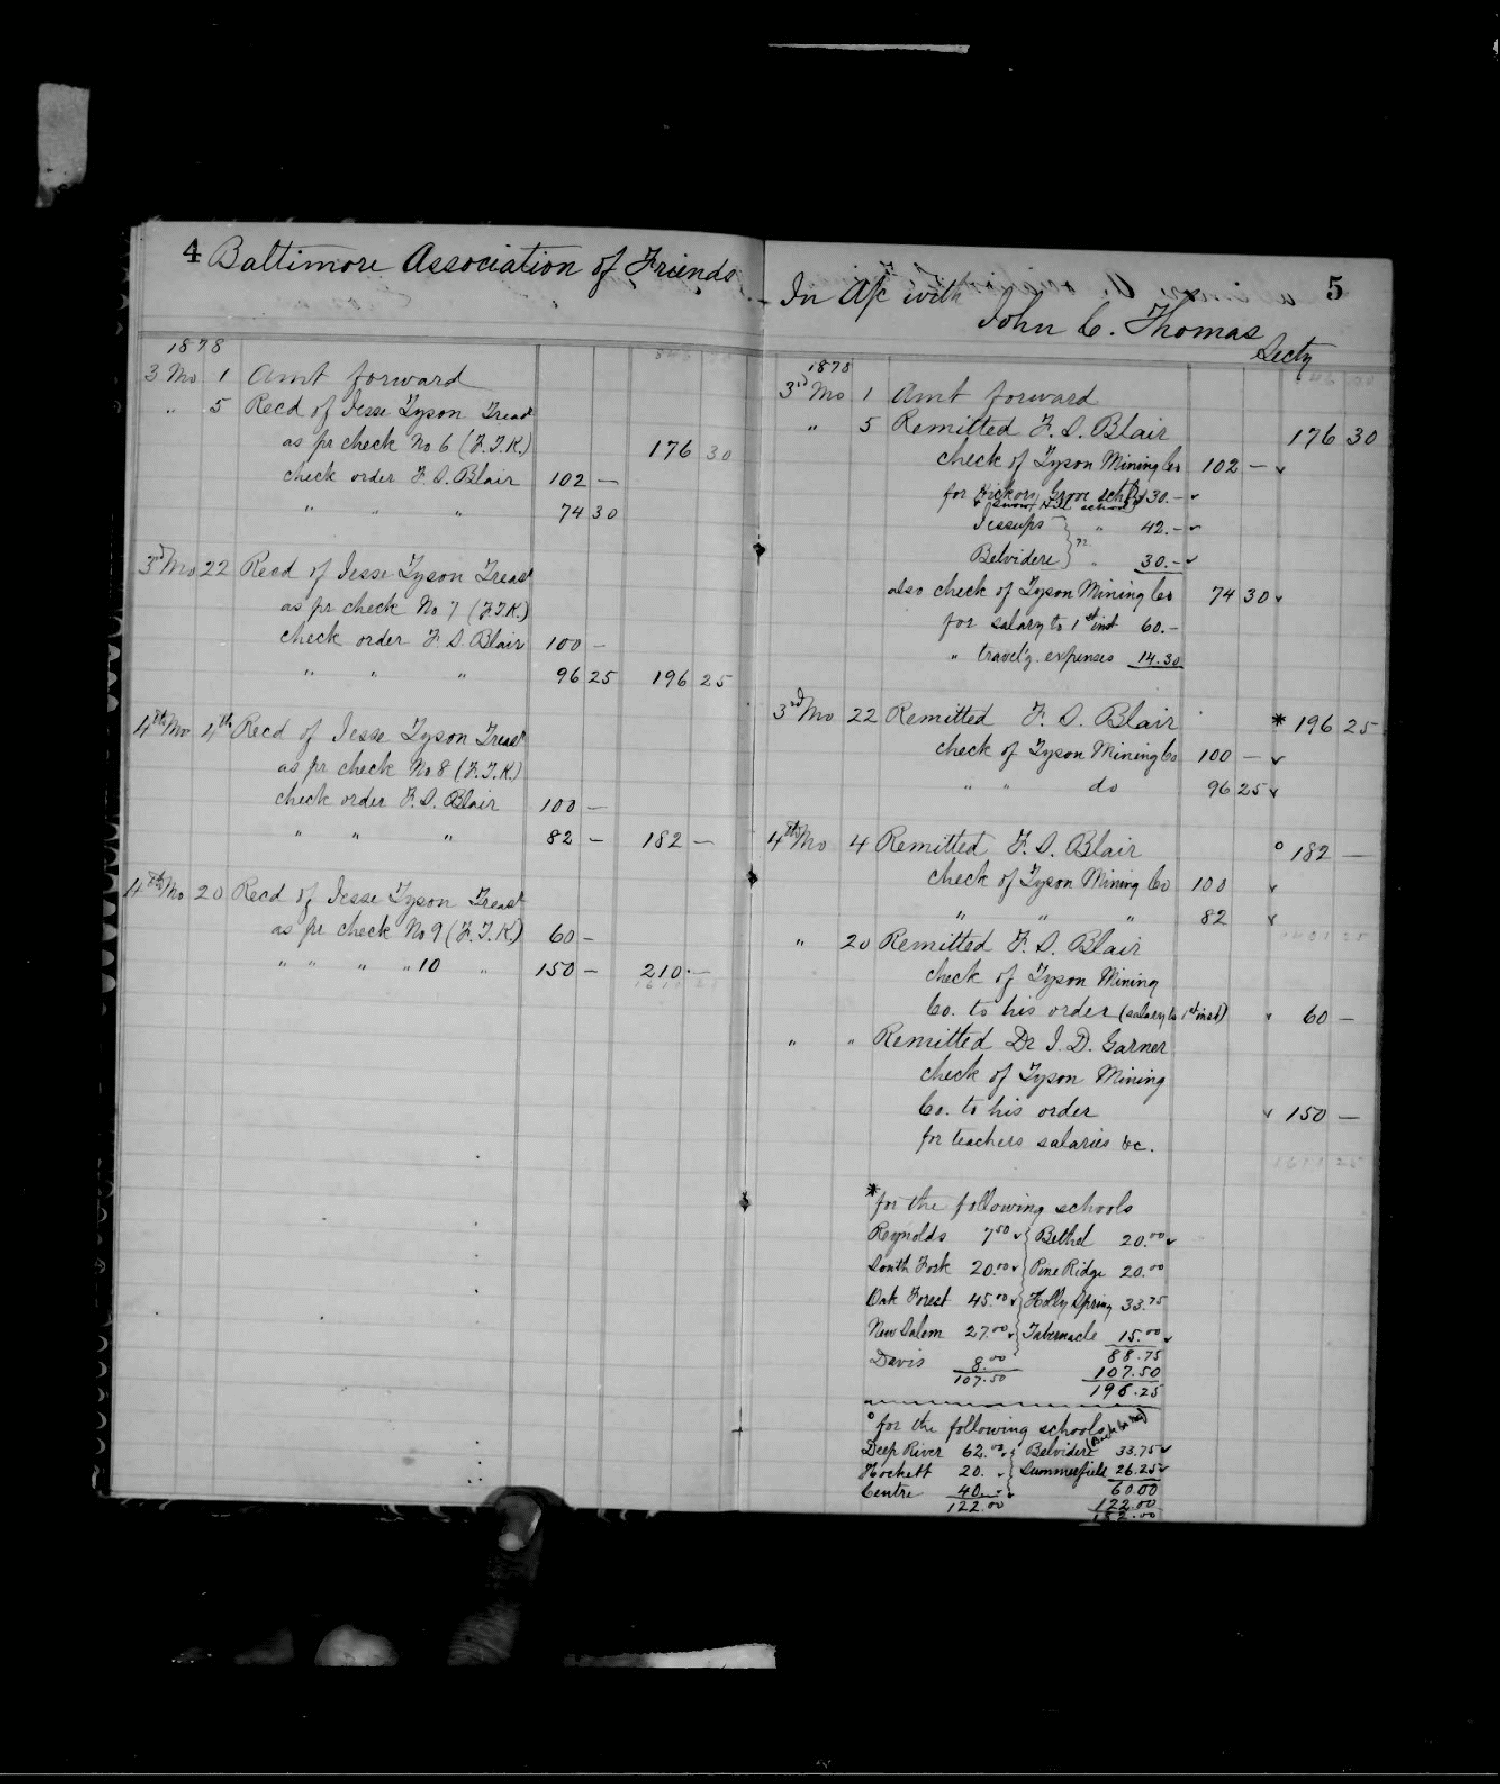 4 Baltimore Association of Friends
1878
3 Mo 1 Amt forward
" 5 Recd of Jesse Tyson Treast
as pr check No 6 (F.T.K.) 176 30
check order F. S. Blair 102 —
" " " 74 30
3d Mo 22 Recd of Jesse Tyson Treast
as pr check No 7 (F.T.K.)
check order F. S. Blair 100 —
" " " 96 25 196 25
4th Mo 4th Recd of Jesse Tyson Treast
as pr check No 8 (F.T.K.)
check order F. S. Blair 100 —
" " " 82 — 182 —
4th Mo 20 Recd of Jesse Tyson Treast
as pr check No 9 (F.T.K.) 60 —
" " " " 10 " 150 — 210. —
5
In A/c with
John C. Thomas
Secty
1878
3d Mo 1 Amt forward
" 5 Remitted F. S. Blair 176 30
check of Tyson Mining Co 102 —
for Hickory Grove schl 30. —
Snow Hill school
Jessups " 42. —
Belvidere " 30. —
also check of Tyson Mining Co 74 30
for salary to 1st inst 60. —
" travel'g. expenses 14.30
3d Mo 22 Remitted F. S. Blair * 196 25
check of Tyson Mining Co 100 —
" " do 96 25
4th Mo 4 Remitted F. S. Blair ° 182 —
check of Tyson Mining Co 100
" " " 82
" 20 Remitted F. S. Blair
check of Tyson Mining
Co. to his order (salary to 1st inst) 60 —
" " Remitted Dr I. D. Garner
check of Tyson Mining
Co. to his order 150 —
for teachers salaries &c.
* for the following schools
Reynolds 7 50 Bethel 20.00
South Fork 20.00 Pine Ridge 20.00
Oak Forest 45.00 Holly Spring 33.75
New Salem 27.00 Tabernacle 15.00
Davis 8.00 88.75
107.50 107.50
196.25
° for the following schools
Deep River 62.00 Belvidere 33.75
Hockett 20. Summerfield 26.25
Centre 40. 60.00
122.00 122.00
182.00